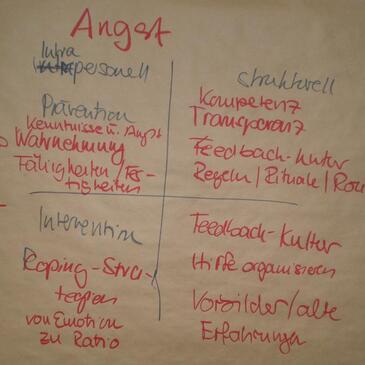 Angst
Intra
personell
strukturell
Prävention
Kenntnisse ü. Angst
Wahrnehmung
Fähigkeiten/Fer-
tigkeiten
Kompetenz
Transparenz
Feedback-Kultur
Regeln/Rituale/Rou
Intervention
Koping-Stra-
tegien
von Emotion
zu Ratio
Feedback-Kultur
Hilfe organisieren
Vorbilder/alte
Erfahrungen